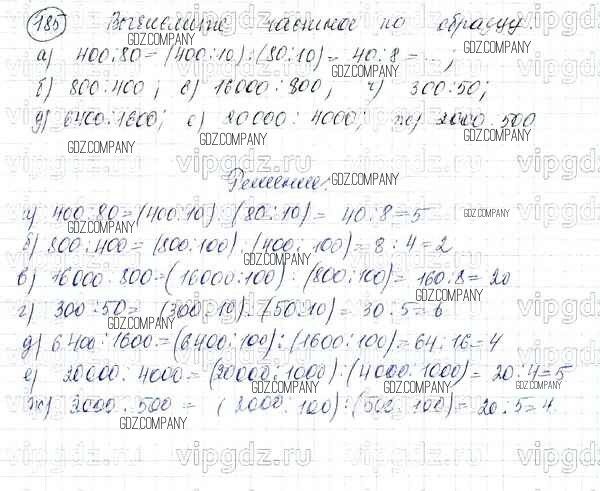 185 Вычислите частное по образцу.
а) 400:80=(400:10):(80:10)= 40:8=...;
б) 800:400; в) 16000:800; г) 300:50;
д) 6400:1600; е) 20000:4000; ж) 2000:500
Решение.
а) 400:80=(400:10):(80:10)= 40:8=5
б) 800:400=(800:100):(400:100)=8:4=2
в) 16000:800=(16000:100):(800:100)=160:8=20
г) 300:50=(300:10):(50:10)=30:5=6
д) 6400:1600=(6400:100):(1600:100)=64:16=4
е) 20000:4000=(20000:1000):(4000:1000)=20:4=5
ж) 2000:500=(2000:100):(500:100)=20:5=4
GDZ.COMPANY
vipgdz.ru